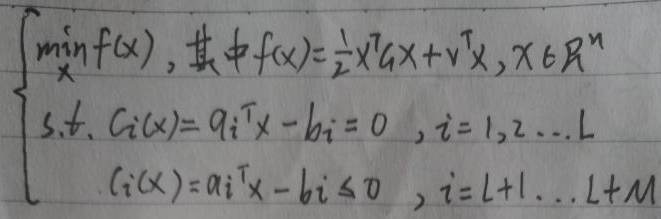 min f(x), 其中 f(x)=½xᵀGx+vᵀx, x∈ℝⁿ
x
s.t. Ci(x)=aiᵀx-bi=0, i=1,2...L
Ci(x)=aiᵀx-bi≤0, i=L+1...L+M